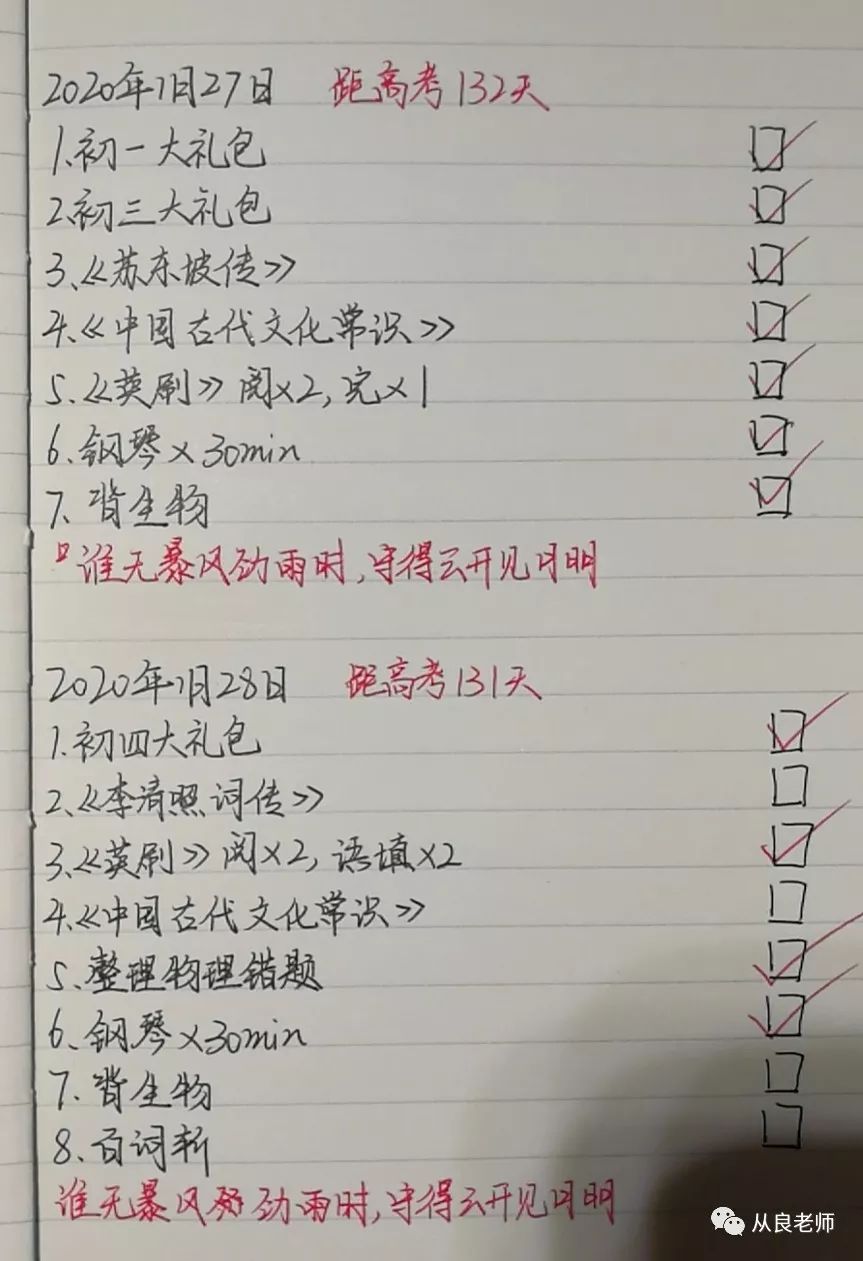 2020年1月27日 距高考132天
1.初一大礼包
2.初三大礼包
3、《苏东坡传》
4.《中国古代文化常识》
5、《英刷》阅×2,完×1
6、钢琴×30min
7、背生物
谁无暴风劲雨时,守得云开见月明
2020年1月28日 距高考131天
1.初四大礼包
2、《李清照词传》
3、《英刷》阅×2,语填×2
4、《中国古代文化常识》
5、整理物理错题
6、钢琴×30min
7、背生物
8、百词斩
谁无暴风劲雨时,守得云开见月明
从良老师